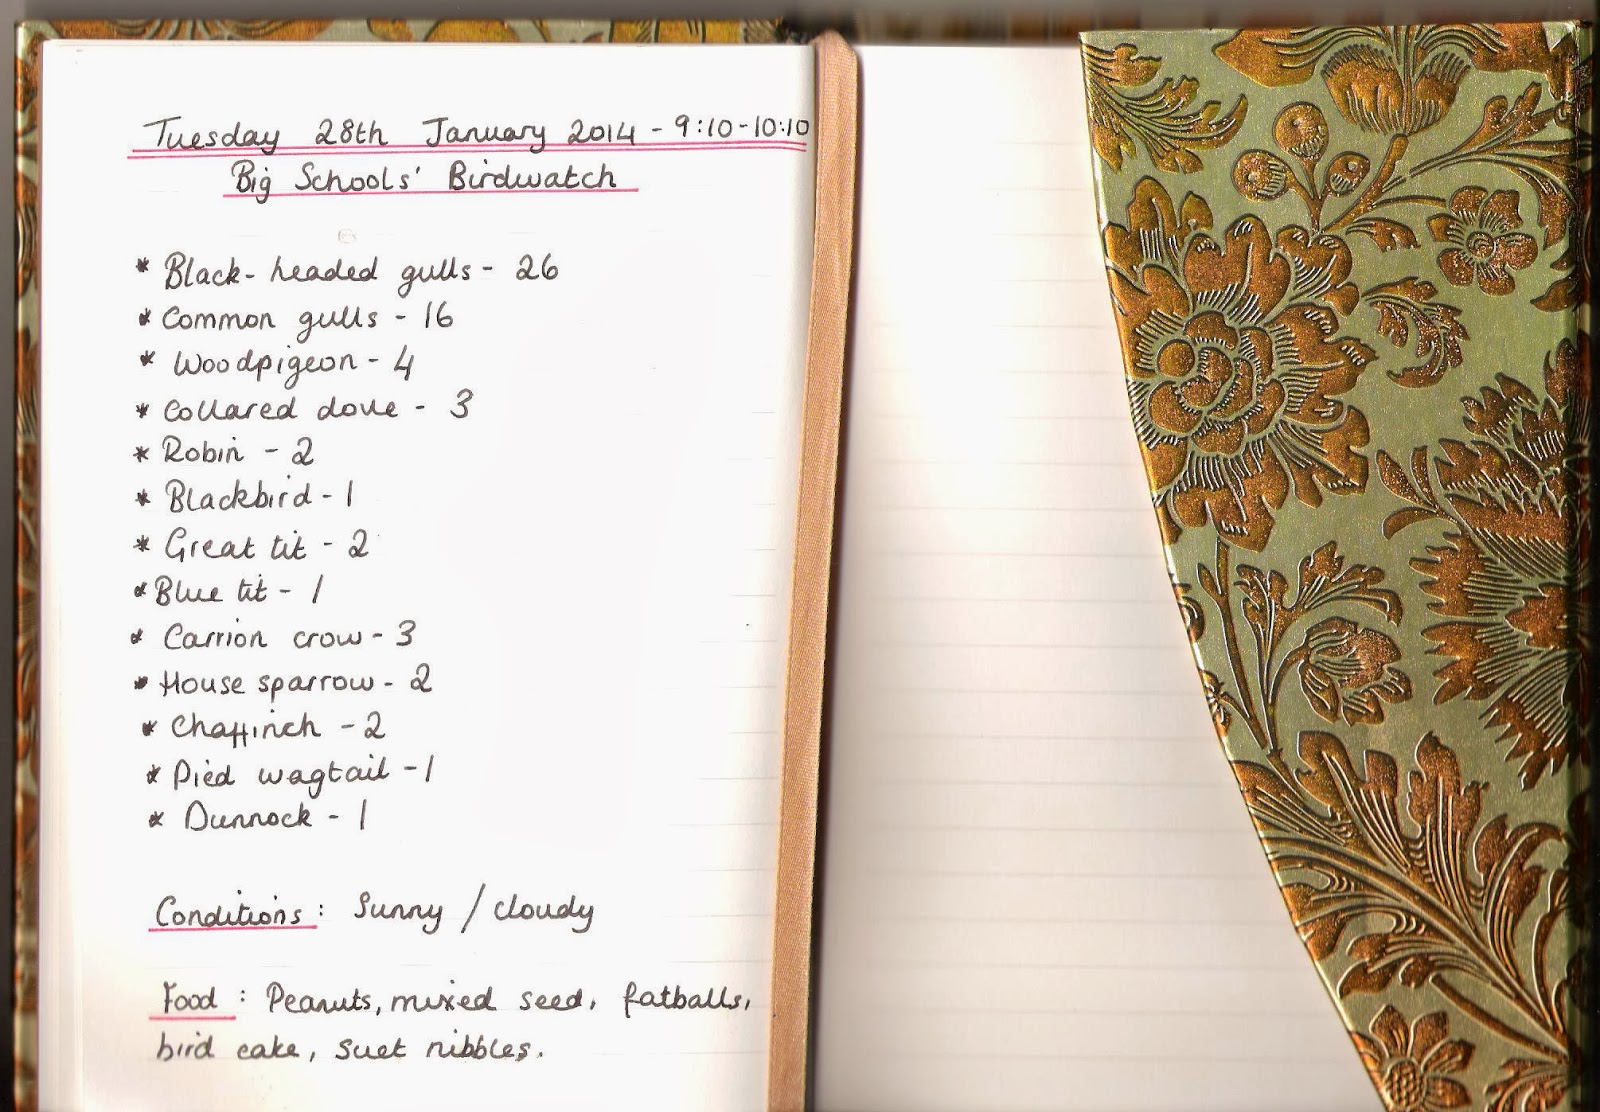 Tuesday 28th January 2014 - 9:10-10:10
Big Schools' Birdwatch
* Black-headed gulls - 26
* Common gulls - 16
* Woodpigeon - 4
* Collared dove - 3
* Robin - 2
* Blackbird - 1
* Great tit - 2
* Blue tit - 1
* Carrion crow - 3
* House sparrow - 2
* Chaffinch - 2
* Pied wagtail - 1
* Dunnock - 1
Conditions: Sunny / cloudy
Food: Peanuts, mixed seed, fatballs,
bird cake, suet nibbles.